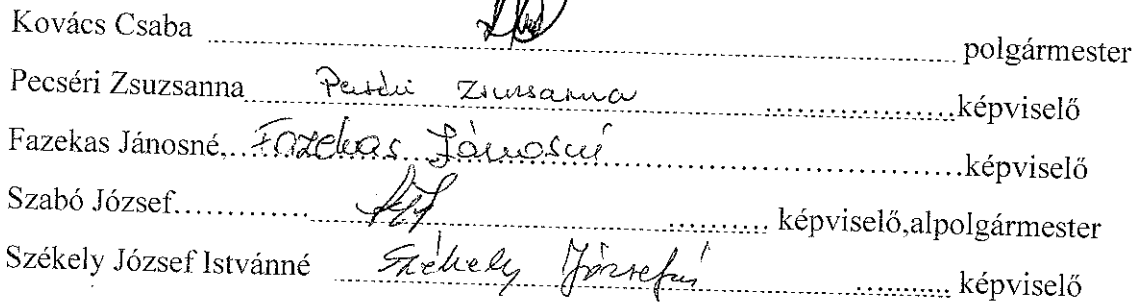 Kovács Csaba ........ polgármester
Pecséri Zsuzsanna Pecséri Zsuzsanna ........képviselő
Fazekas Jánosné,..Fazekas Jánosné........képviselő
Szabó József............. .......... képviselő,alpolgármester
Székely József Istvánné Székely Józsefné .......... képviselő